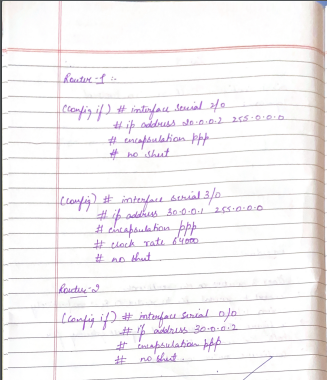 Router-1 :-
(Config if) # interface serial 2/0
# ip address 20.0.0.2 255.0.0.0
# encapsulation ppp
# no shut
(Config) # interface serial 3/0
# ip address 30.0.0.1 255.0.0.0
# encapsulation ppp
# clock rate 64000
# no shut
Router-2
(Config if) # interface serial 0/0
# ip address 30.0.0.2
# encapsulation ppp
# no shut.